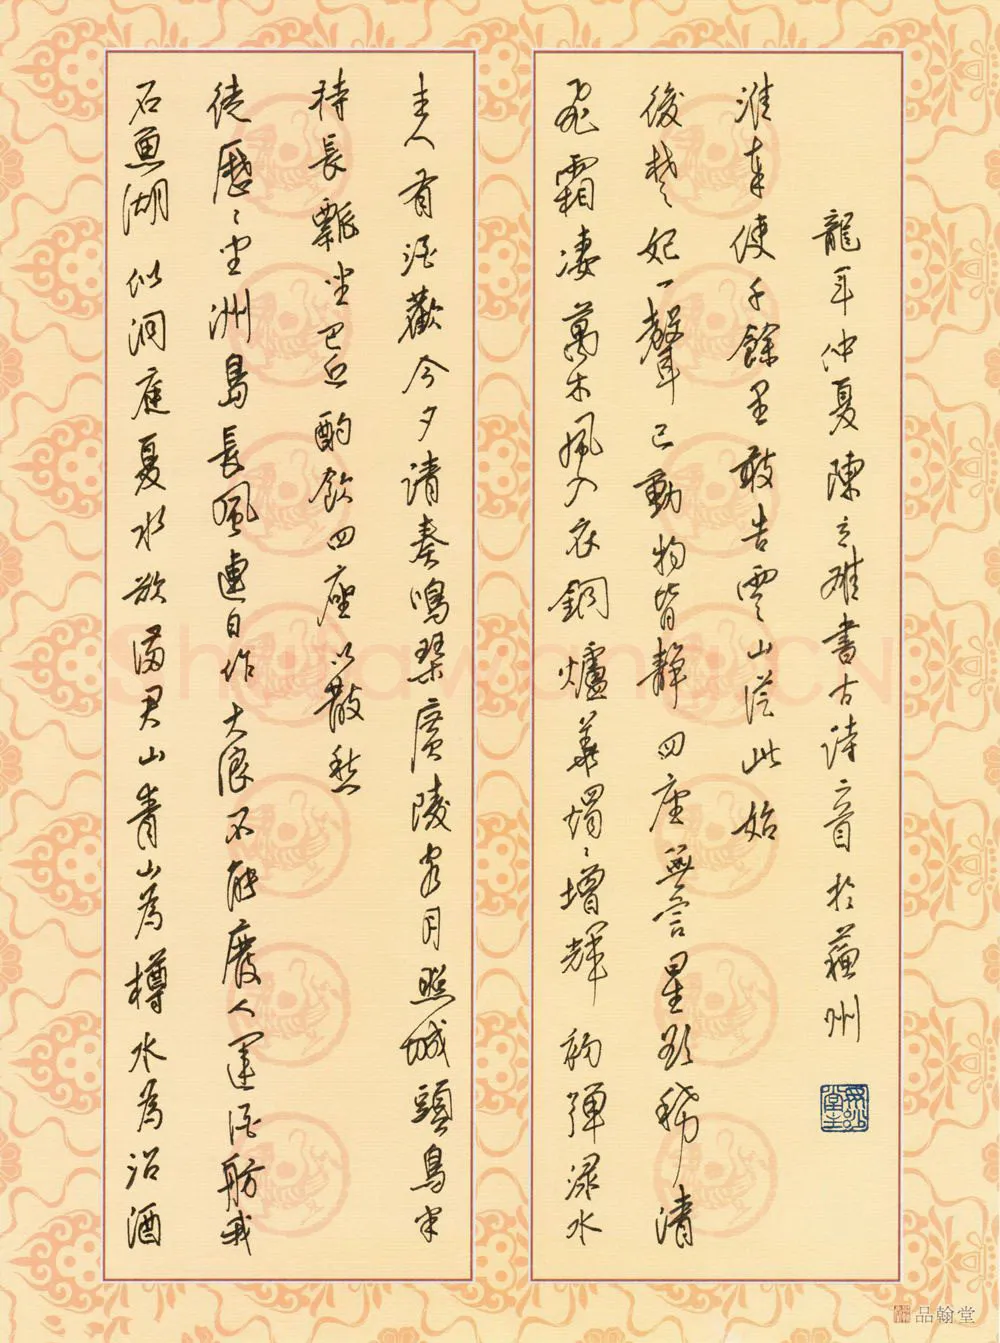 石魚湖似洞庭夏水欲滿君山青山為樽水為沼酒
徒歷〻坐洲島長風連日作大浪不能廢人運酒舫我
持長瓢坐巴丘酌飲四座以散愁
主人有酒歡今夕請奏鳴琴廣陵客月照城頭烏半
飛霜凄萬木風入衣銅爐華燭〻增輝初彈淥水
後楚妃一聲已動物皆靜四座無言星欲稀清
淮奉使千餘里敢告雲山從此始
龍年仲夏陳書古詩二首於蘇州
品翰堂